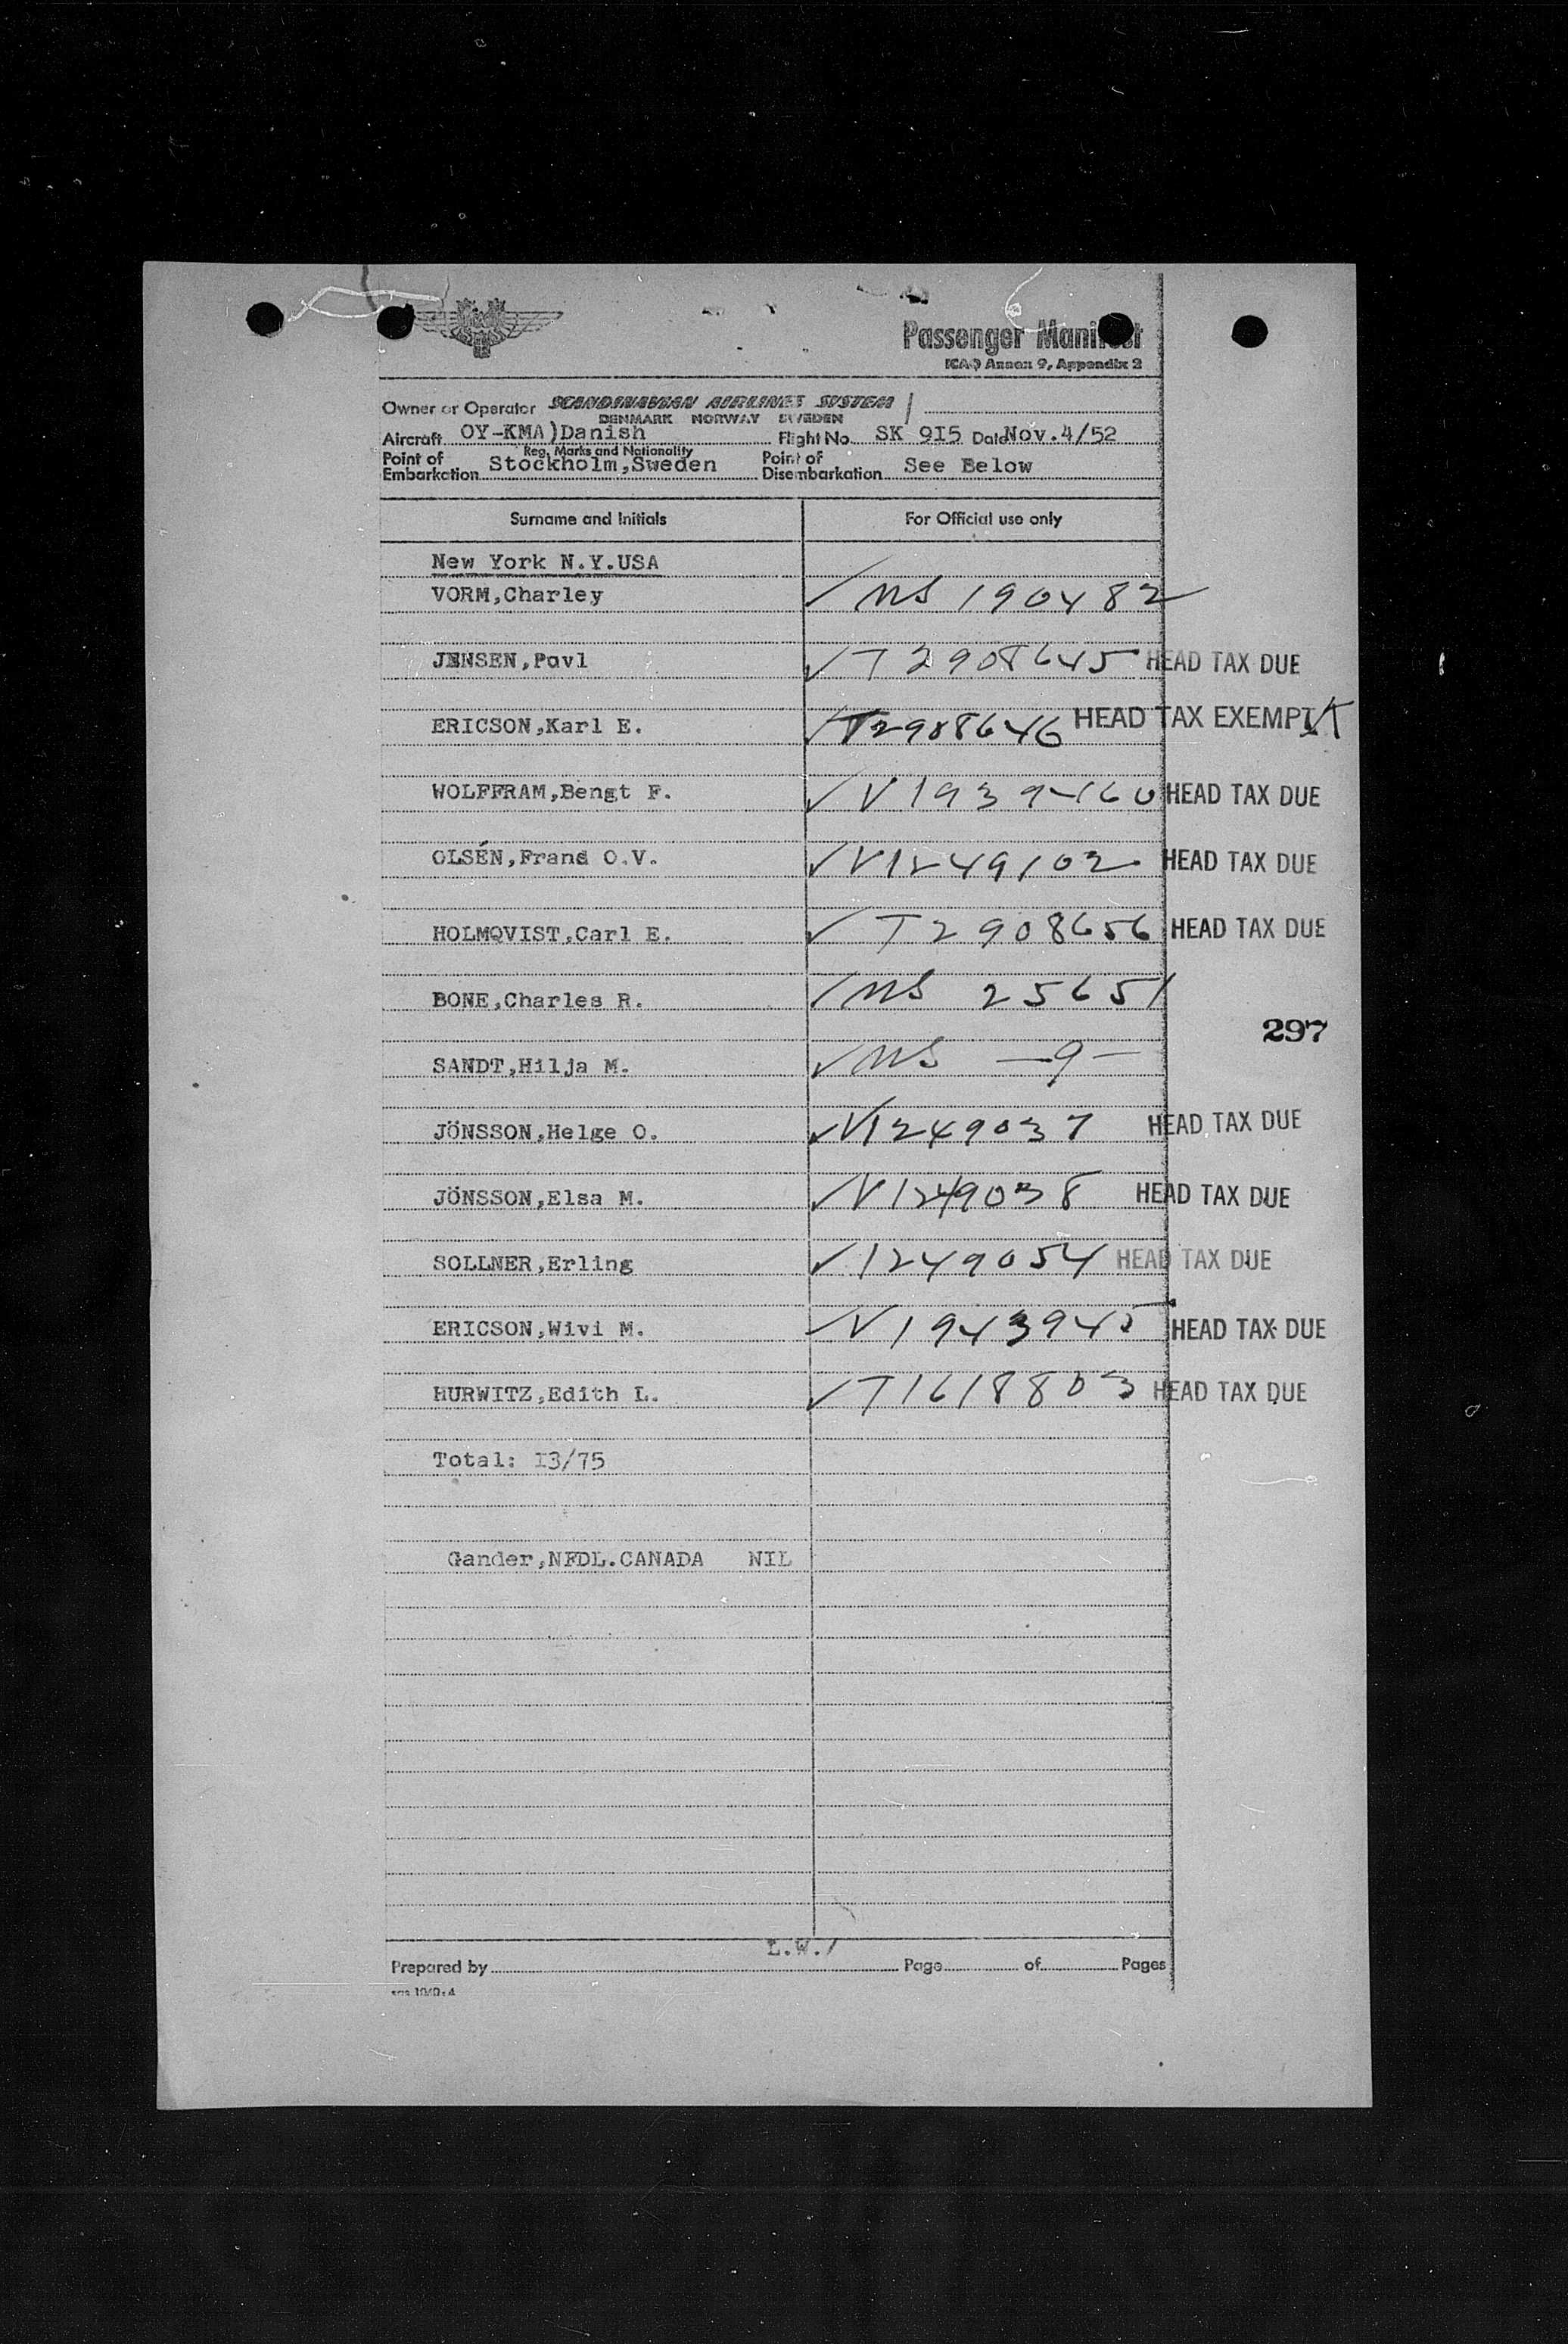 Passenger Manifest
ICAO Annex 9, Appendix 2
Owner or Operator SCANDINAVIAN AIRLINES SYSTEM
DENMARK NORWAY SWEDEN
Aircraft OY-KMA)Danish Flight No. SK 9I5 Date Nov.4/52
Reg. Marks and Nationality
Point of Embarkation Stockholm,Sweden Point of Disembarkation See Below
Surname and Initials For Official use only
New York N.Y.USA
VORM,Charley ✓ US 190482
JENSEN,Pavl ✓ T 2908645 HEAD TAX DUE
ERICSON,Karl E. ✓ T2908646 HEAD TAX EXEMPT
WOLFFRAM,Bengt F. ✓ V1939160 HEAD TAX DUE
OLSÉN,Frans O.V. ✓ V1249102 HEAD TAX DUE
HOLMQVIST,Carl E. ✓ T2908656 HEAD TAX DUE
BONE,Charles R. ✓ US 25651
297
SANDT,Hilja M. ✓ US —9—
JÖNSSON,Helge O. ✓ V1249037 HEAD TAX DUE
JÖNSSON,Elsa M. ✓ V1249038 HEAD TAX DUE
SOLLNER,Erling ✓ 1249054 HEAD TAX DUE
ERICSON,Wivi M. ✓ V1943945 HEAD TAX DUE
HURWITZ,Edith L. ✓ T1618803 HEAD TAX DUE
Total: I3/75
Gander,NFDL.CANADA NIL
L.W./
Prepared by Page of Pages